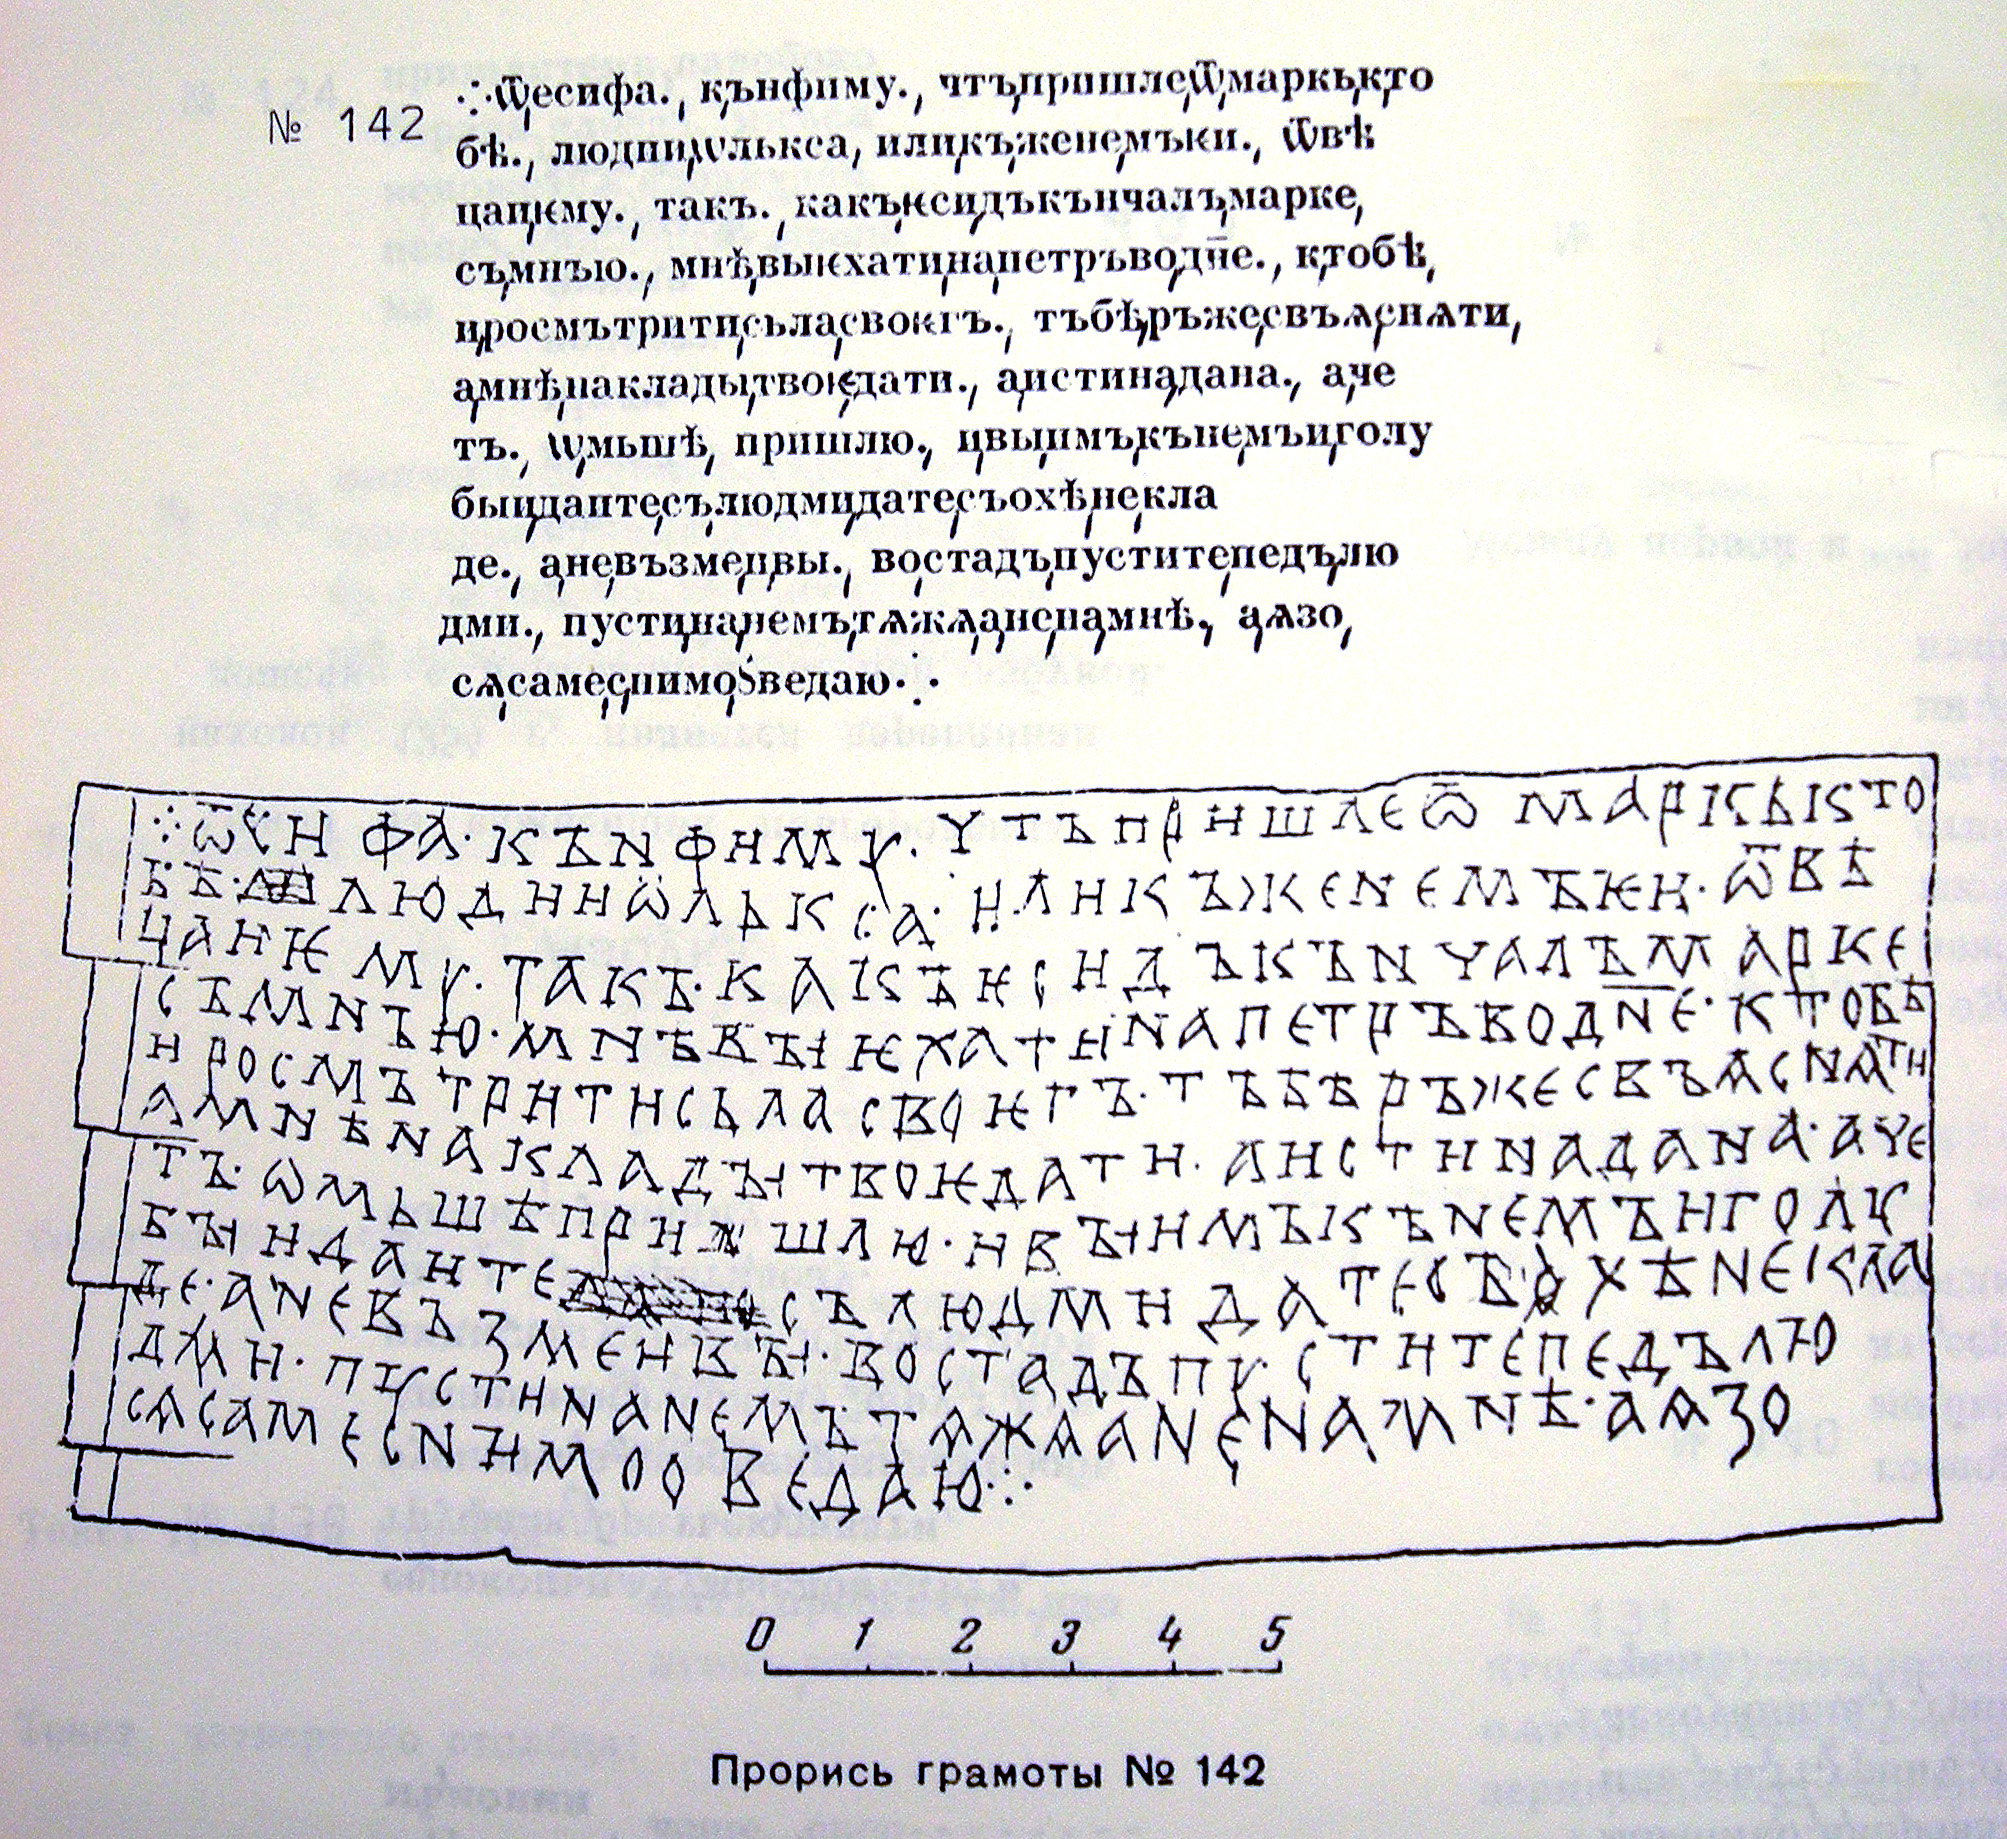 № 142
⁘ѿесифа., кънфиму., чтъпришлеѿмаркъікто
бѣ., людииѡлькса, иликъженемъѥи., ѿвѣ
цаиѥму., такъ., какъѥсидъкънчалъмарке,
съмнъю., мнѣвыѥхатинапетръводн҃е., ктобѣ,
иросмътритисьласвоѥгъ., тъбѣръжесвъѧснѧти,
амнѣнакладытвоѥдати., аистинадана., аче
тъ., ѡмьшѣ, пришлю., ивыимъкънемъиголу
быидаитесълюдмидатесъохѣнекла
де., аневъзмеивы., востадъпуститепедълю
дми., пустинанемътѧжѧаненамнѣ., аѧзо,
сѧсамеснимоѕведаю⁘
⁘ѿсифа·кънфиму·чтъпришлеѿмаркьікто
бѣ·людииѡлькса·иликъженемъѥи·ѿвѣ
цаиѥму·такъ·какъѥсидъкънчалъмарке
съмнъю·мнѣвыѥхатинапетръводн҃е·ктобѣ
иросмътритисьласвоѥгъ·тъбѣръжесвъѧснѧти
амнѣнакладытвоѥдати·аистинадана·аче
тъ·ѡмьшѣпришлю·ивыимъкънемъиголу
быидаитесълюдмидатесъохѣнекла
де·аневъзмеивы·востадъпуститепедълю
дми·пустинанемътѧжѧаненамнѣ·аѧзо
сѧсамеснимооведаю⁘
0 1 2 3 4 5
Прорись грамоты № 142